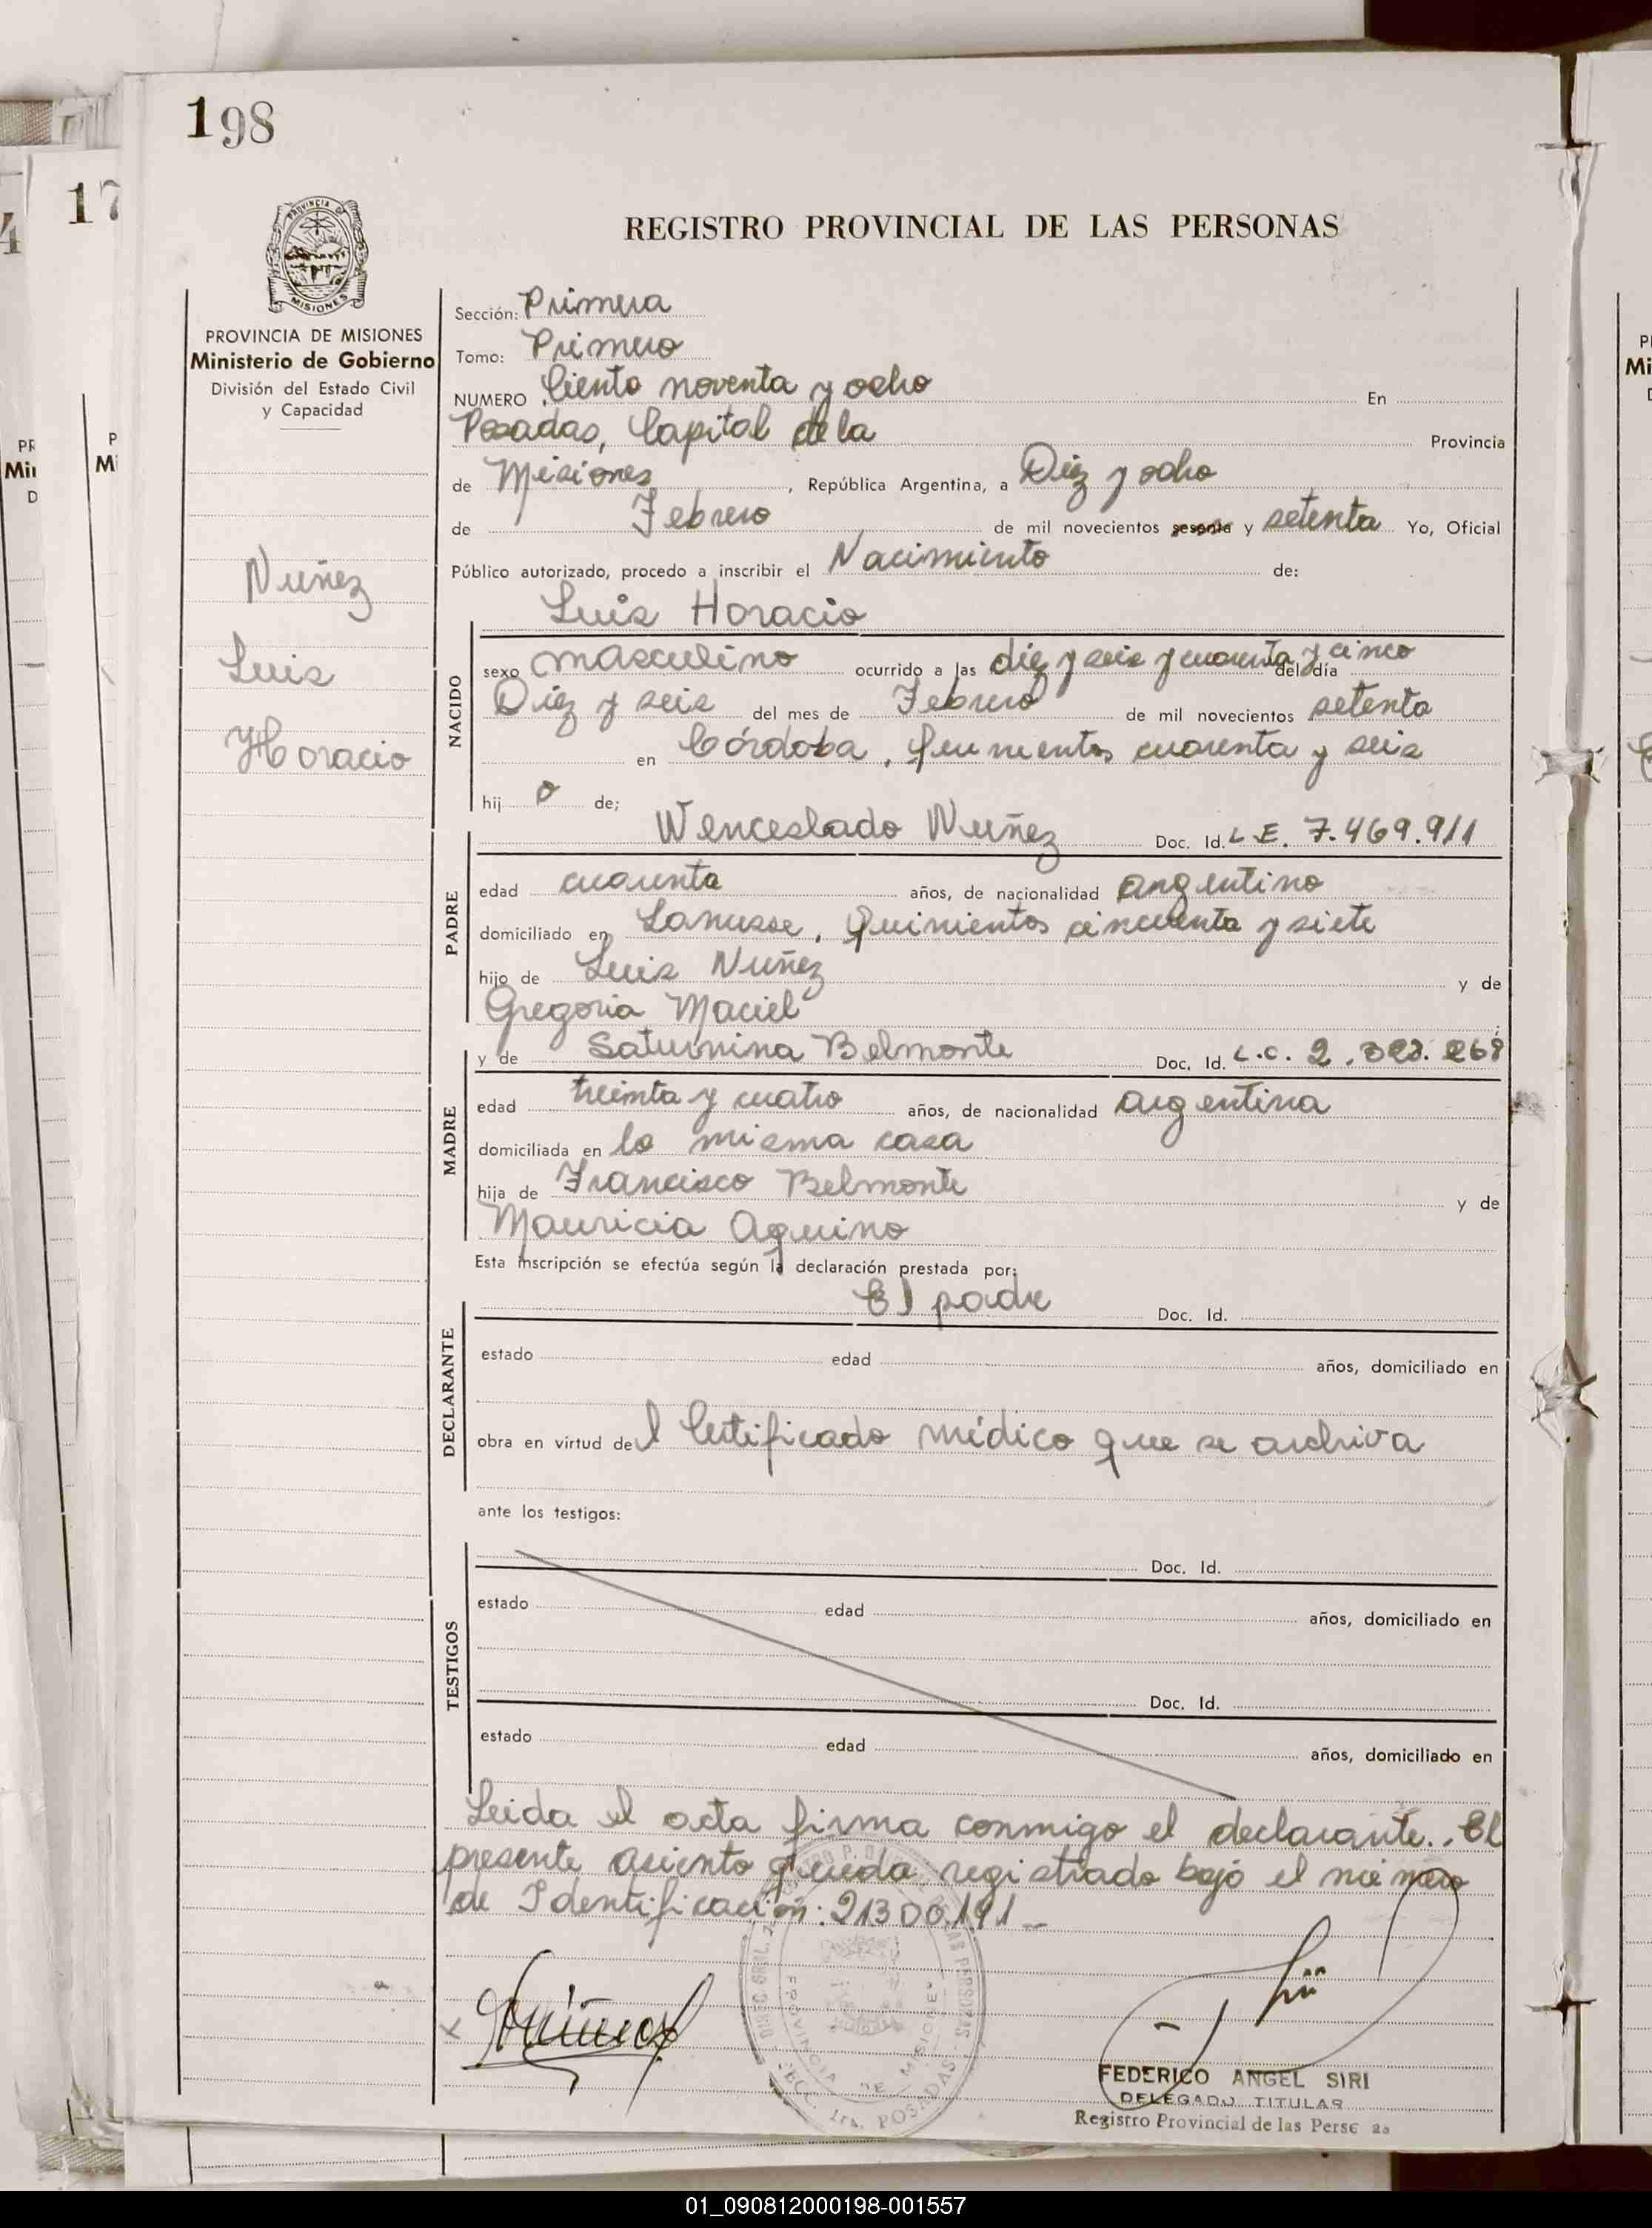 198
17
4
REGISTRO PROVINCIAL DE LAS PERSONAS
PROVINCIA DE MISIONES
Ministerio de Gobierno
División del Estado Civil
y Capacidad
Nuñez
Luis
Horacio
Sección: Primera
Tomo: Primero
NUMERO Ciento noventa y ocho En
Posadas, Capital de la Provincia
de Misiones, República Argentina, a Diez y ocho
de Febrero de mil novecientos sesenta y setenta Yo, Oficial
Público autorizado, procedo a inscribir el Nacimiento de:
Luis Horacio
NACIDO
sexo masculino ocurrido a las diez y seis y cuarenta y cinco del día
Diez y seis del mes de Febrero de mil novecientos setenta
en Córdoba, Quinientos cuarenta y seis
hij o de;
Wenceslado Nuñez Doc. Id. L.E. 7.469.911
PADRE
edad cuarenta años, de nacionalidad argentino
domiciliado en Lanusse, Quinientos cincuenta y siete
hijo de Luis Nuñez y de
Gregoria Maciel
y de Saturnina Belmonte Doc. Id. L.C. 2.
MADRE
edad treinta y cuatro años, de nacionalidad argentina
domiciliada en la misma casa
hija de Francisco Belmonte y de
Mauricia Aquino
Esta inscripción se efectúa según la declaración prestada por:
El padre Doc. Id.
DECLARANTE
estado edad años, domiciliado en
obra en virtud del Certificado médico que se archiva
ante los testigos:
Doc. Id.
TESTIGOS
estado edad años, domiciliado en
Doc. Id.
estado edad años, domiciliado en
Leida el acta firma conmigo el declarante.. El
presente asiento queda registrado bajo el número
de Identificación: 21300.191_
PROVINCIA DE MISIONES
POSADAS
FEDERICO ANGEL SIRI
DELEGADO TITULAR
Registro Provincial de las Perso as
01_090812000198-001557